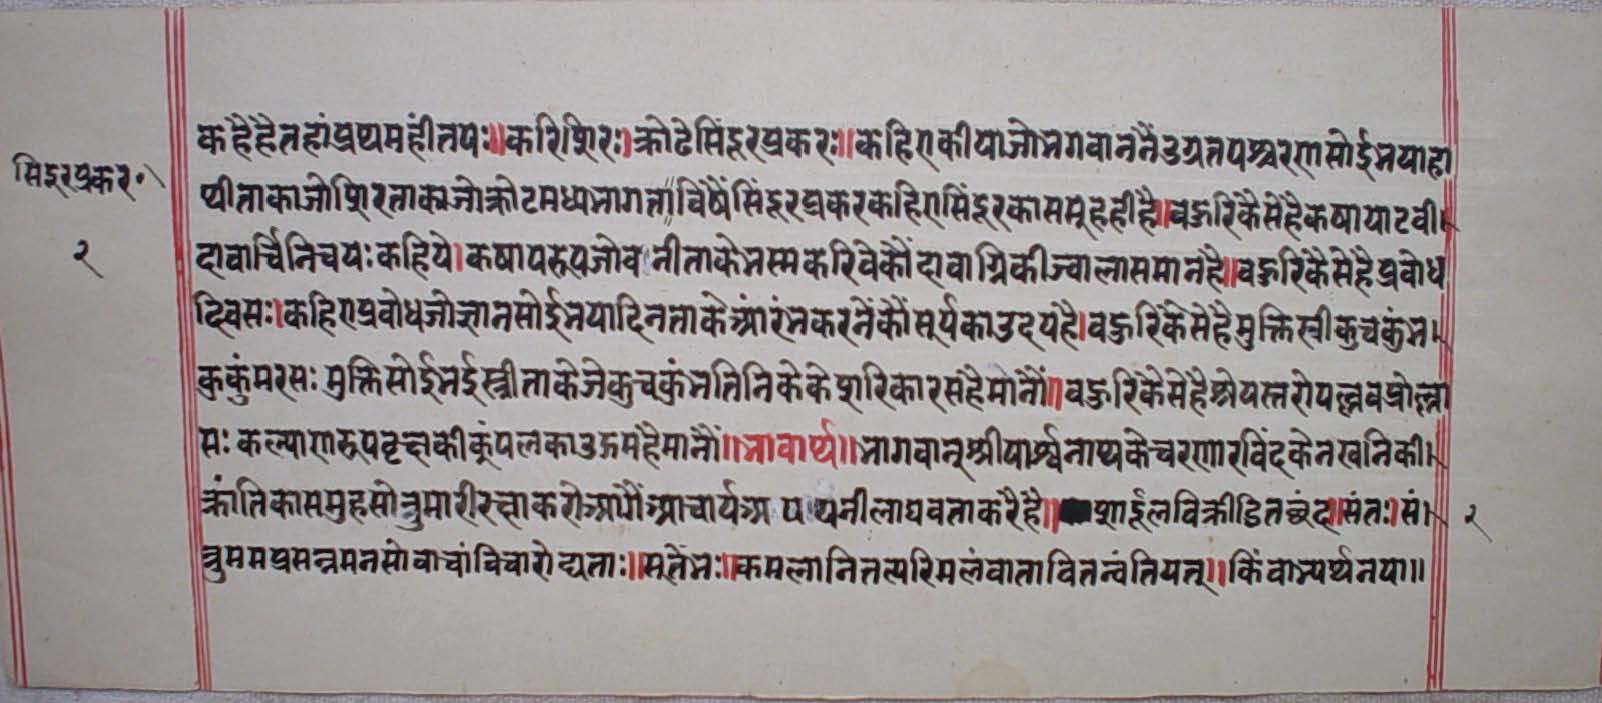 क है हैतहां प्रथमहीं तपः॥करिशिरः।क्रोटेसिंदूरप्रकरः॥कहिए कीयाजोभगवाननैं उग्रतपश्चरण सोई भया हा
सिंदूरप्रकर॰
थीताकाजोशिरताकाजोक्रोटमध्यभागताविषैं सिंदूरप्रकरकहिए सिंदूरकासमूहही है॥वङरि कैसे है कषायाटवी।
२
दावार्चिनिचयः कहिये।कषायरूपजोवनीताकेभस्मकरिवेकौं दावाग्निकीज्वालासमान है॥वङरि कैसे है प्रबोध
दिवसः।कहिए प्रबोधजोज्ञानसोई भयादिनताके आरंभकरनेंकौं सूर्यकाउदय है।वङरि कैसे है मुक्तिस्त्रीकुचकुंभ।
कुकुंमरसः मुक्तिसोई भई स्त्रीताकेजेकुचकुंभतिनिकेकेशरिकारस है मानौं॥वङरि कैसे है श्रेयस्तरोपल्लवप्रोल्ला
सः कल्याणरूपवृक्षकीकूंपलकाउद्गम है मानौं॥भावार्थ॥भागवान् श्रीपार्श्वनाथकेचरणारविंदकेनखनिकी।
क्रांतिकासमुहसोतुमारीरक्षाकरो आगैं आचार्य अपयनीलाघवताकरै है॥शार्दूलविक्रीडितछंद॥संतः।सं। २
तुममप्रसन्नमनसोवाचांविचारोद्यताः॥सूतेंभः॥कमलानितत्परिमलंवातावितन्वंतियत्॥किंवाभ्यर्थनया॥